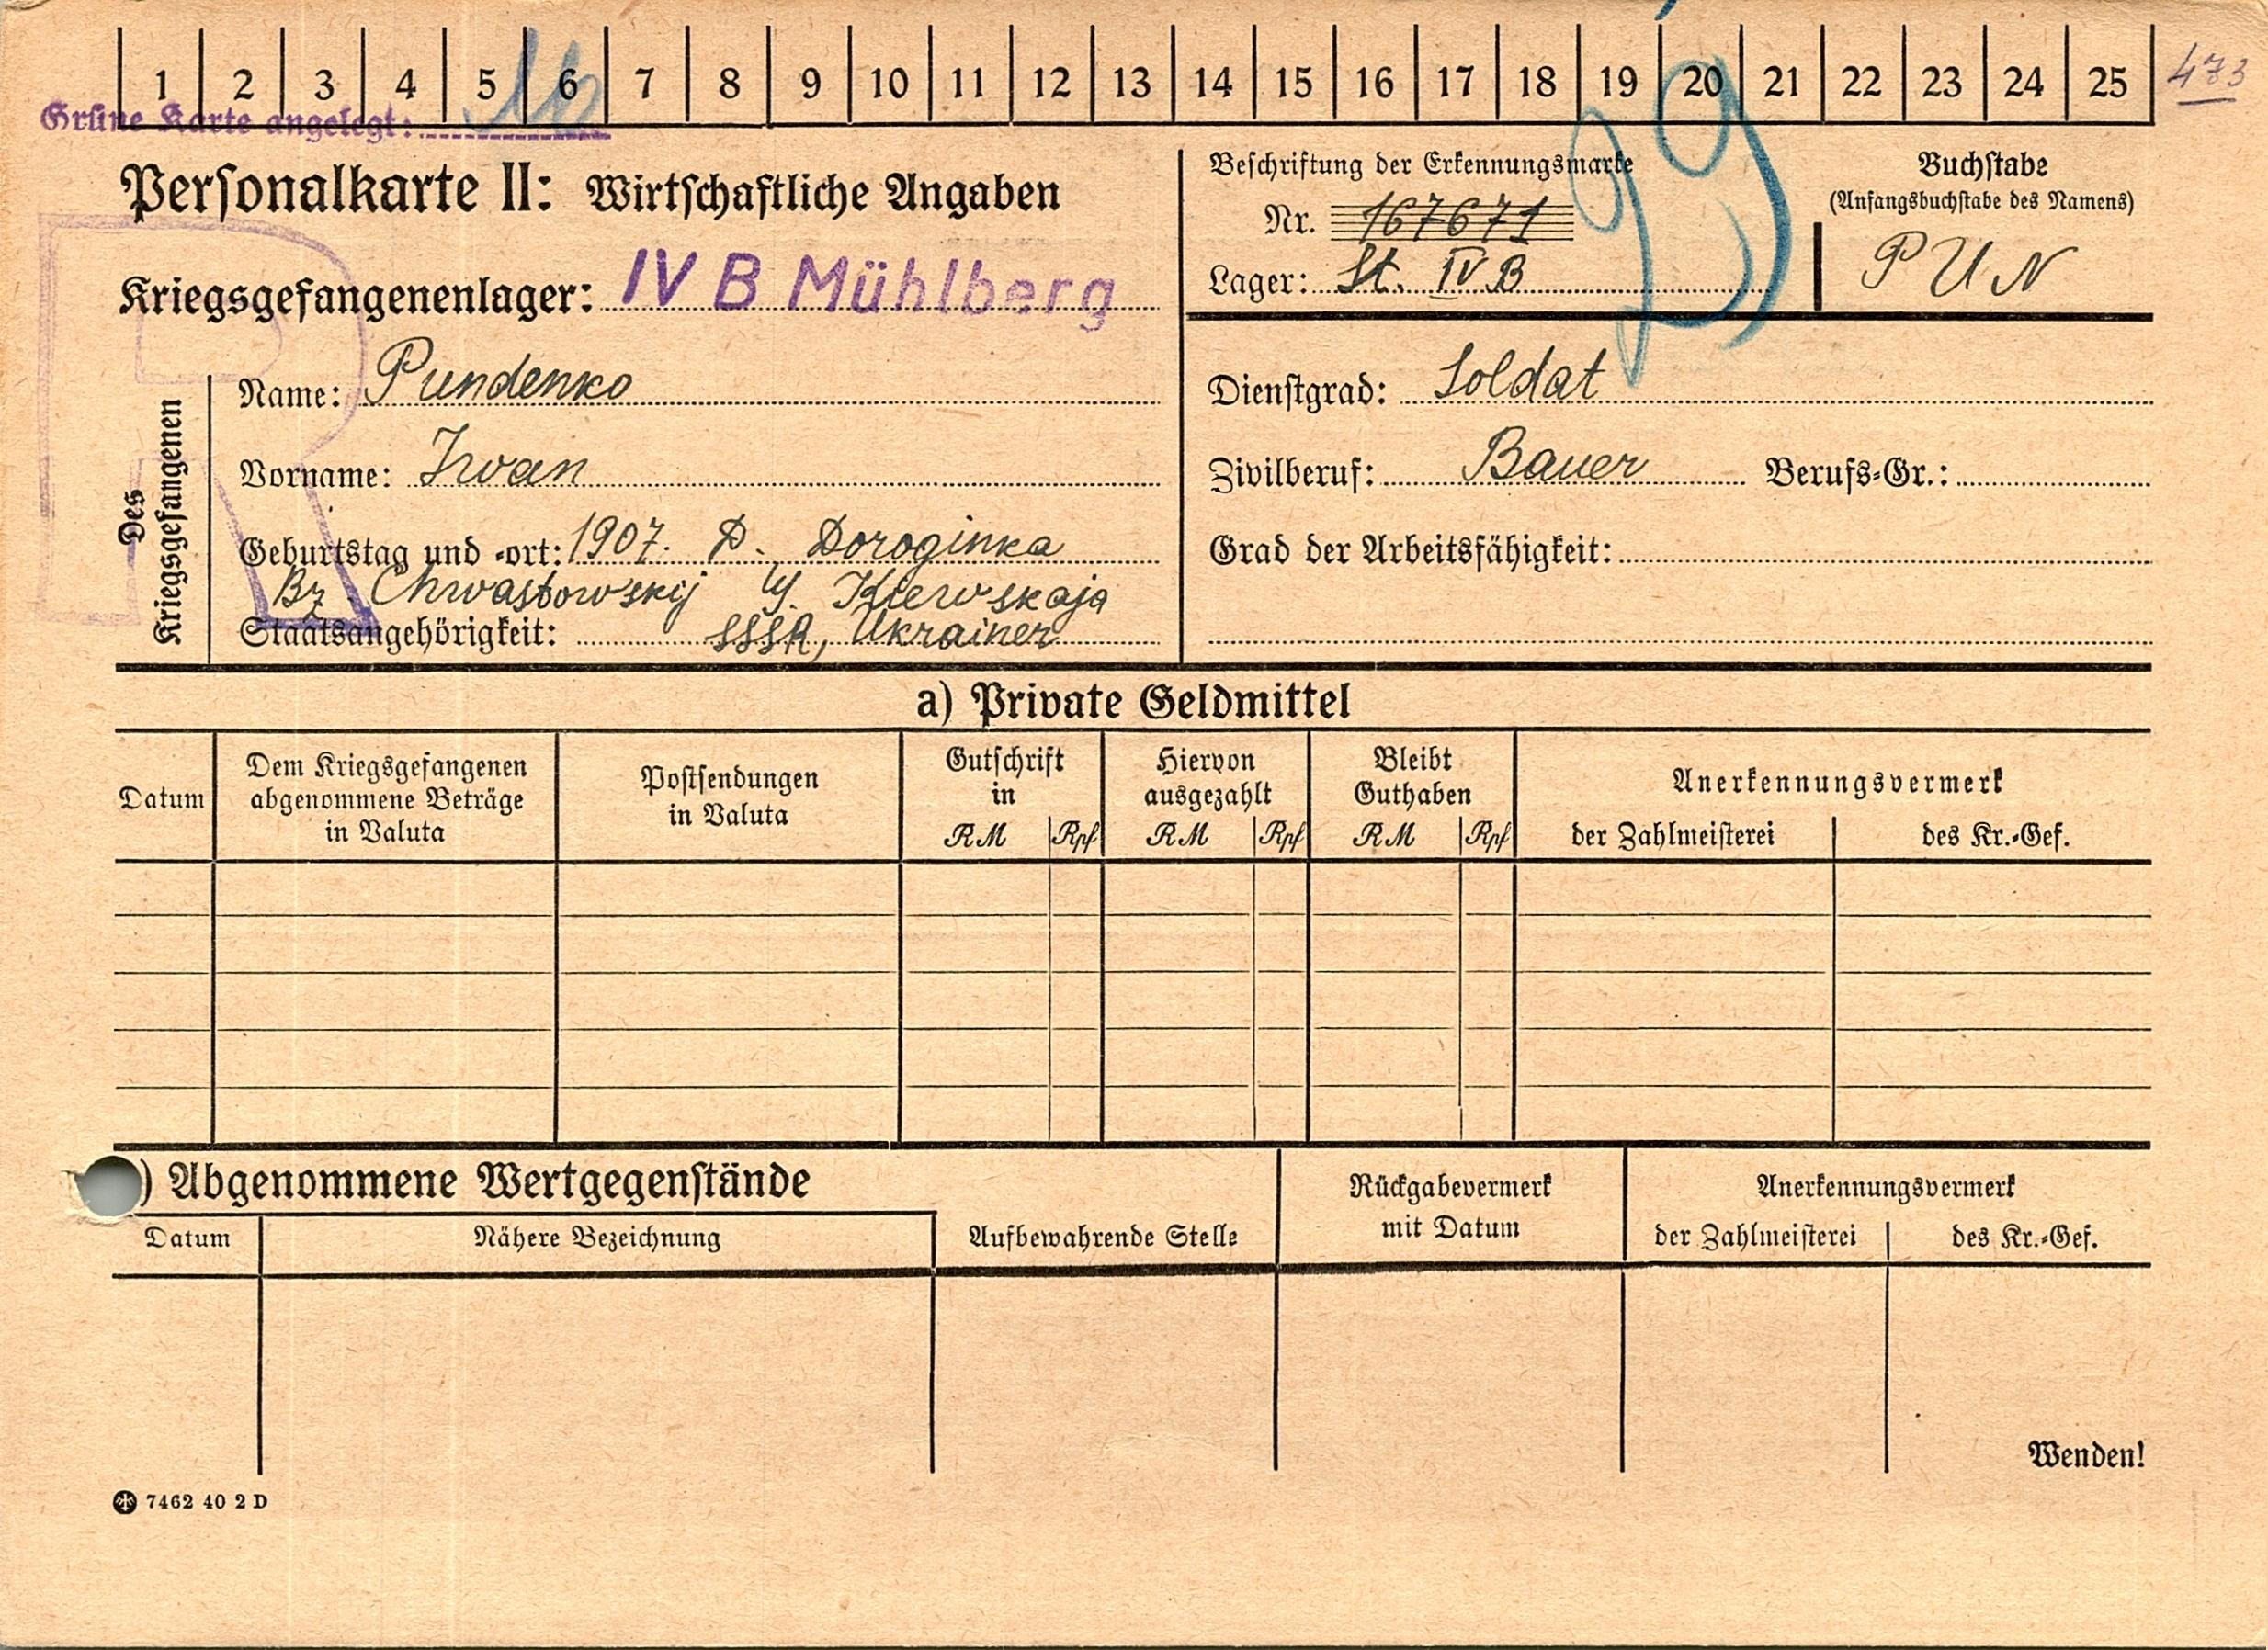 1 2 3 4 5 6 7 8 9 10 11 12 13 14 15 16 17 18 19 20 21 22 23 24 25 473
Grüne Karte angelegt:
Personalkarte II: Wirtschaftliche Angaben
Kriegsgefangenenlager: IV B Mühlberg
Beschriftung der Erkennungsmarke
Nr. 167671
Lager: St. IV B
Buchstabe
(Anfangsbuchstabe des Namens)
P U N
Des
Kriegsgefangenen
Name: Pundenko
Vorname: Iwan
Geburtstag und -ort: 1907. D. Doroginka
Bz. Chwastowskij G. Kiewskaja
Staatsangehörigkeit: SSSR, Ukrainer
Dienstgrad: Soldat
Zivilberuf: Bauer Berufs-Gr.:
Grad der Arbeitsfähigkeit:
a) Private Geldmittel
Datum
Dem Kriegsgefangenen
abgenommene Beträge
in Valuta
Postsendungen
in Valuta
Gutschrift
in
RM Rpf
Hiervon
ausgezahlt
RM Rpf
Bleibt
Guthaben
RM Rpf
Anerkennungsvermerk
der Zahlmeisterei des Kr.-Gef.
) Abgenommene Wertgegenstände
Datum Nähere Bezeichnung
Aufbewahrende Stelle
Rückgabevermerk
mit Datum
Anerkennungsvermerk
der Zahlmeisterei des Kr.-Gef.
Wenden!
7462 40 2 D